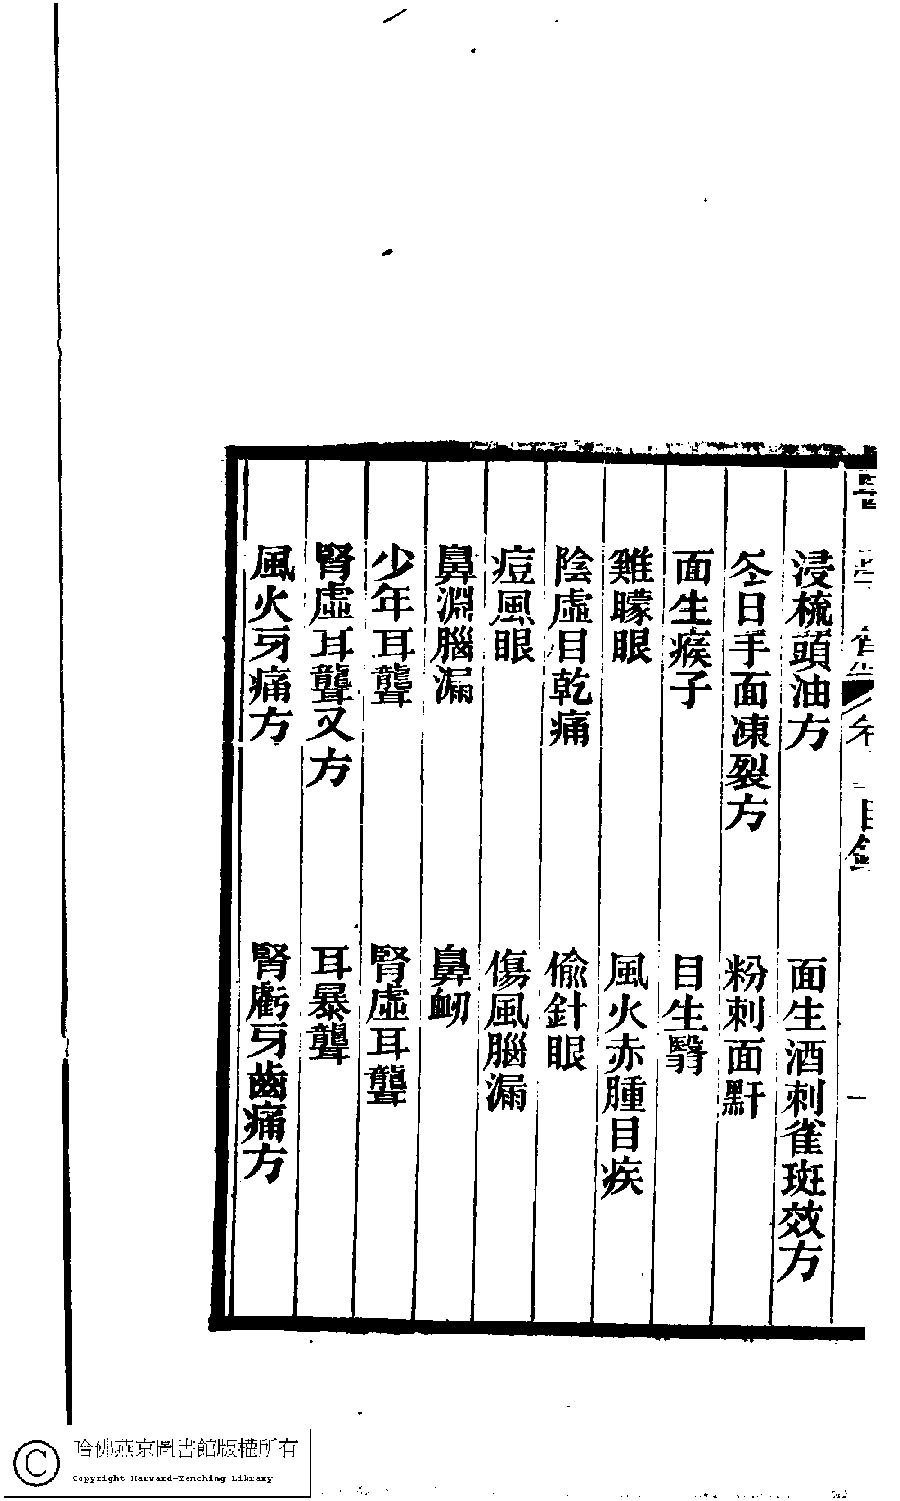 浸梳頭油方
面生酒刺雀斑效方
冬日手面凍裂方
粉刺面䵟
面生瘊子
目生翳
雞矇眼
風火赤腫目疾
陰虛目乾痛
偷針眼
痘風眼
傷風腦漏
鼻淵腦漏
鼻衂
少年耳聾
腎虛耳聾
腎虛耳聾又方
耳暴聾
風火牙痛方
腎虧牙齒痛方
哈佛燕京圖書館版權所有
Copyright Harvard-Yenching Library